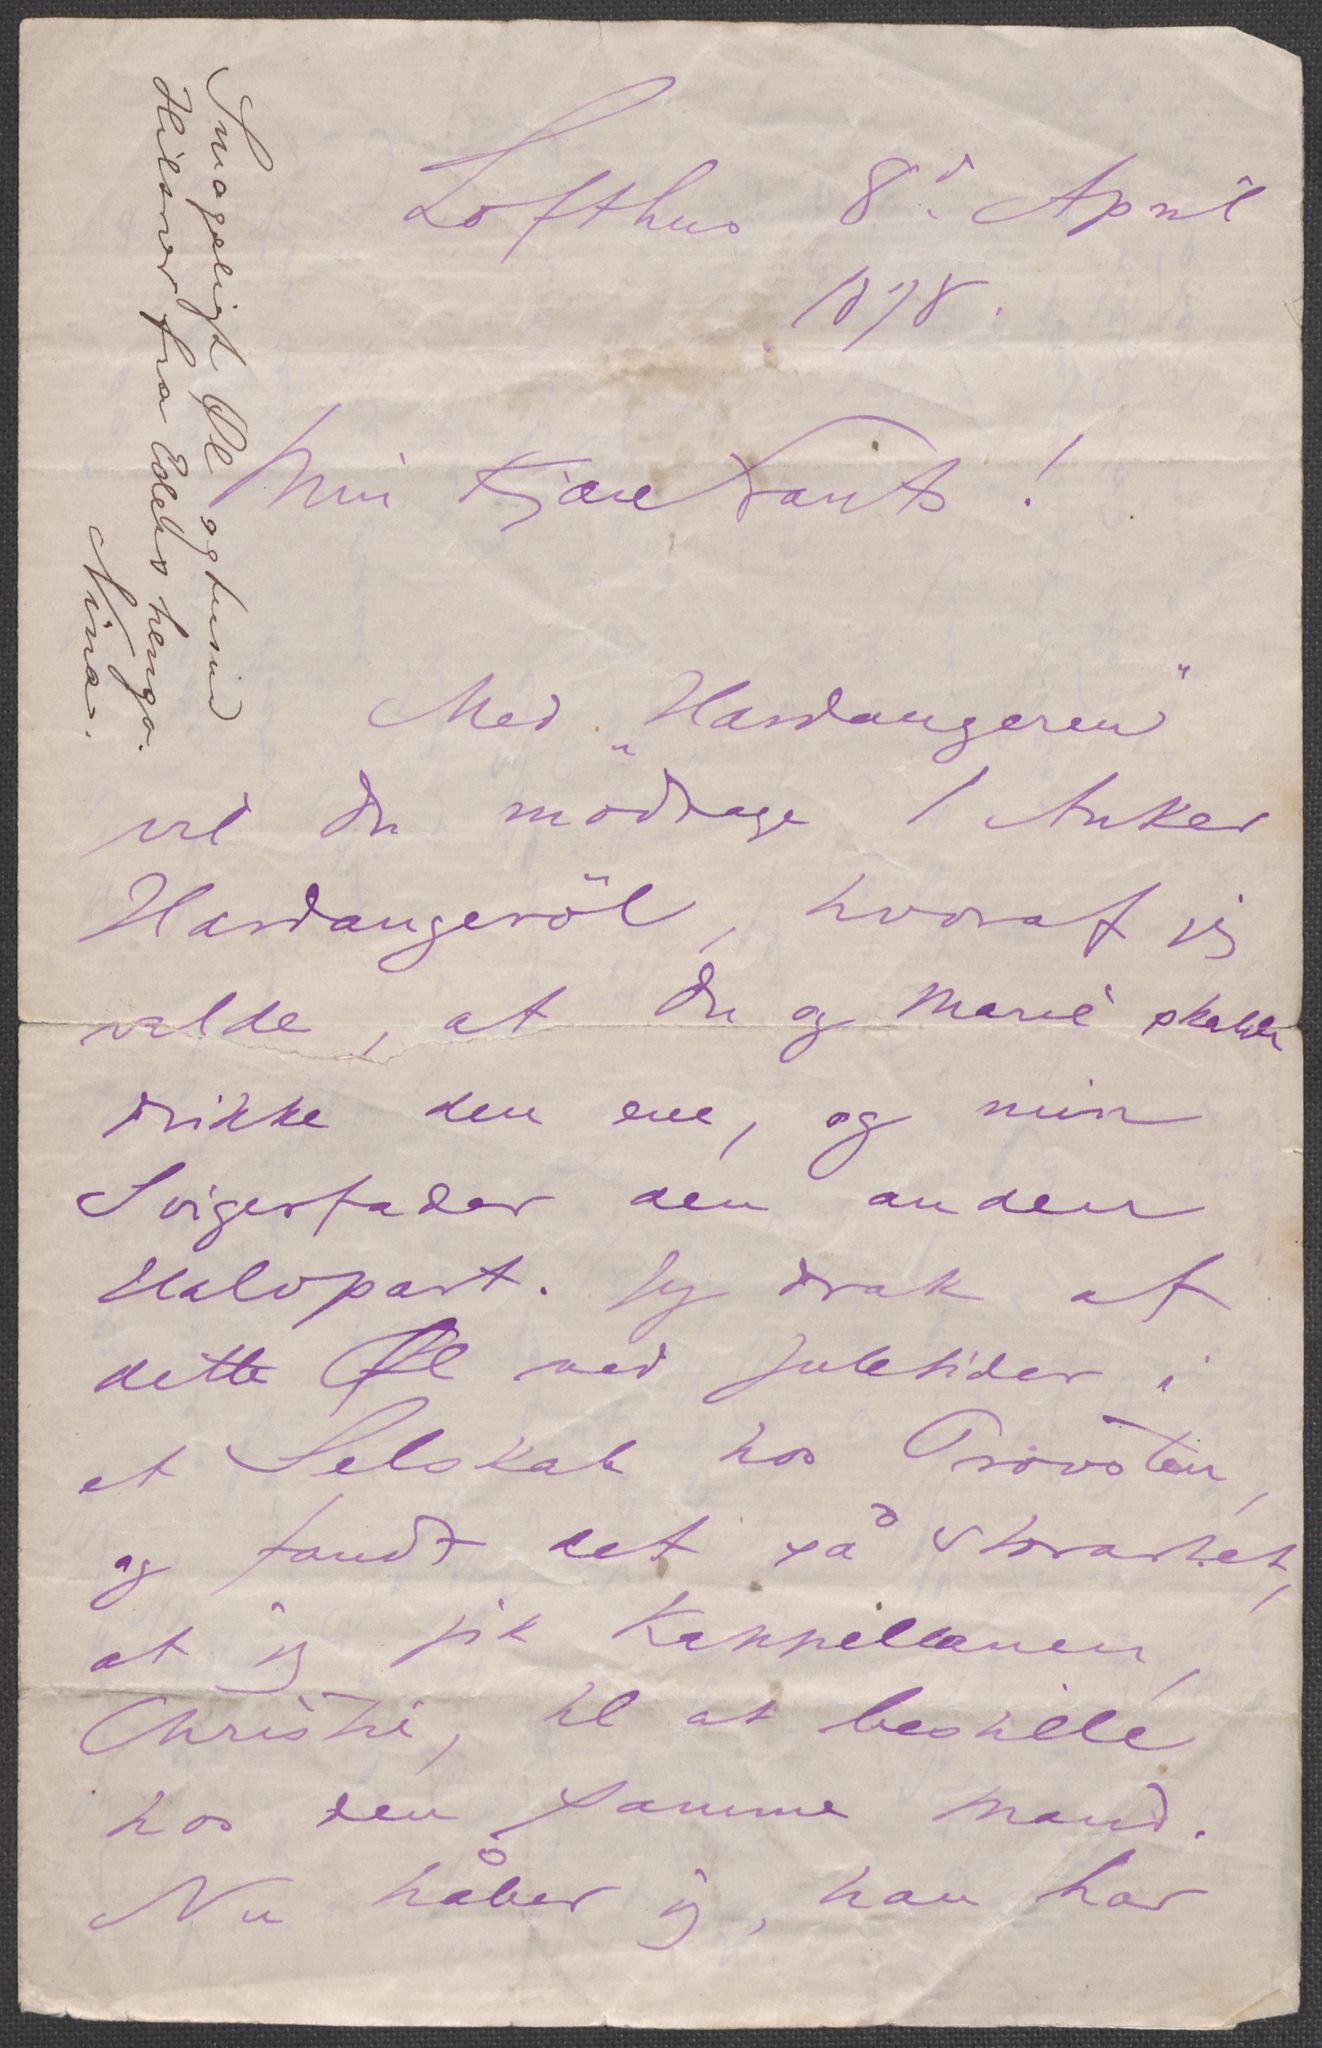 Lofthus 8d April
1878.
Min kjære Frants!
Med „Hardangeren“
vil du modtage 1 Anker
Hardangeröl, hvoraf jeg
vilde, at du og Marie skulde
drikke den ene, og min
Svigerfader den anden
Halvpart. Jeg drak af
dette Øl ved Juletider i
et Selskab hos Provsten,
og fandt det så storartet,
at jeg fik Kappellanen,
Christie, til at bestille
hos den samme Mand.
Nu håber jeg, han har
Smageligt Øl og tusind
Hilsner fra Eders hengo.
Nina.